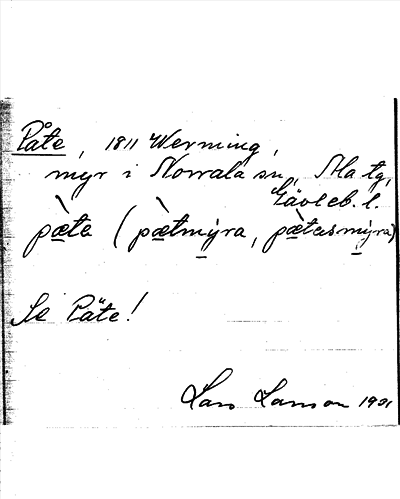 Påte, 1811 Werming,
myr i Norrala sn, Ala tg,
Gävleb. l.
pæ̀ta (pæ̀tmyra, pæ̀tasmyra)
Se Päte!
Lars Larsson 1921